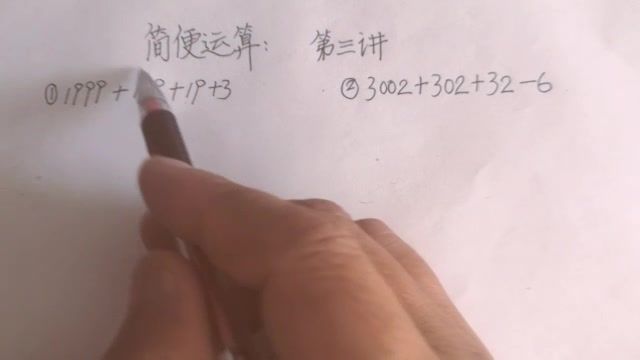 简便运算: 第三讲
①1999+ 9+19+3 ②3002+302+32-6